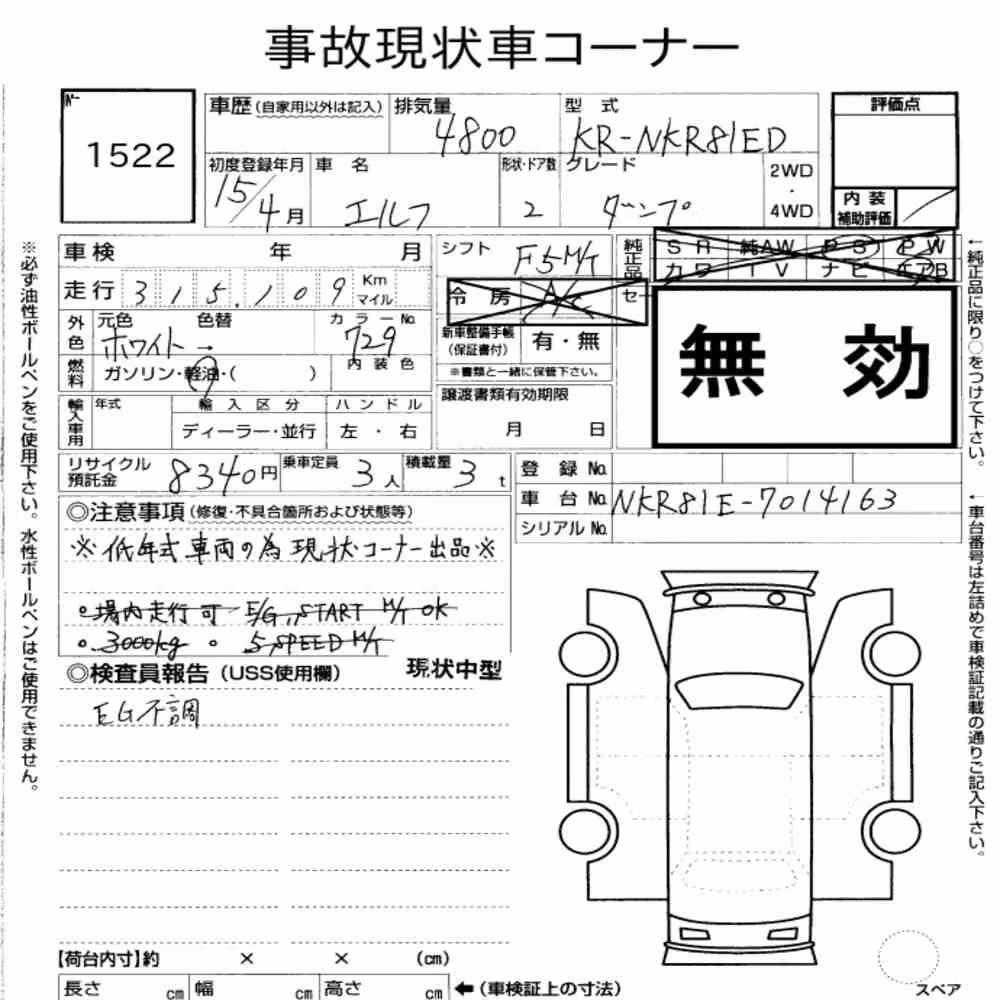 事故現状車コーナー
No. 1522
車歴(自家用以外は記入)
排気量 4800
型式 KR-NKR81ED
評価点
初度登録年月 15/4月
車名 エルフ
形状・ドア数 2
グレード ダンプ
2WD・4WD
内装補助評価
車検 年 月
シフト F5M/T
純正品
SR 純AW PS PW
カワ TV ナビ エアB
走行 315,109 Km マイル
冷房 A/C
セー
無効
外色 元色 ホワイト → 色替
カラーNo. 729
新車整備手帳(保証書付) 有・無
※書類と一緒に保管下さい。
燃料 ガソリン・軽油・( )
内装色
輸入車用 年式 輸入区分 ハンドル
ディーラー・並行 左・右
譲渡書類有効期限
月 日
リサイクル預託金 8340円
乗車定員 3人
積載量 3t
登録No.
車台No. NKR81E-7014163
シリアルNo.
◎注意事項(修復・不具合箇所および状態等)
※低年式車両の為現状コーナー出品※
。場内走行可 E/G,,START M/T OK
。3000kg 。5SPEED M/T
◎検査員報告(USS使用欄) 現状中型
EG不調
【荷台内寸】約 × × (cm)
長さ cm 幅 cm 高さ cm ←(車検証上の寸法)
スペア
※必ず油性ボールペンをご使用下さい。水性ボールペンはご使用できません。
←純正品に限り○をつけて下さい。
←車台番号は左詰めで車検証記載の通りご記入下さい。